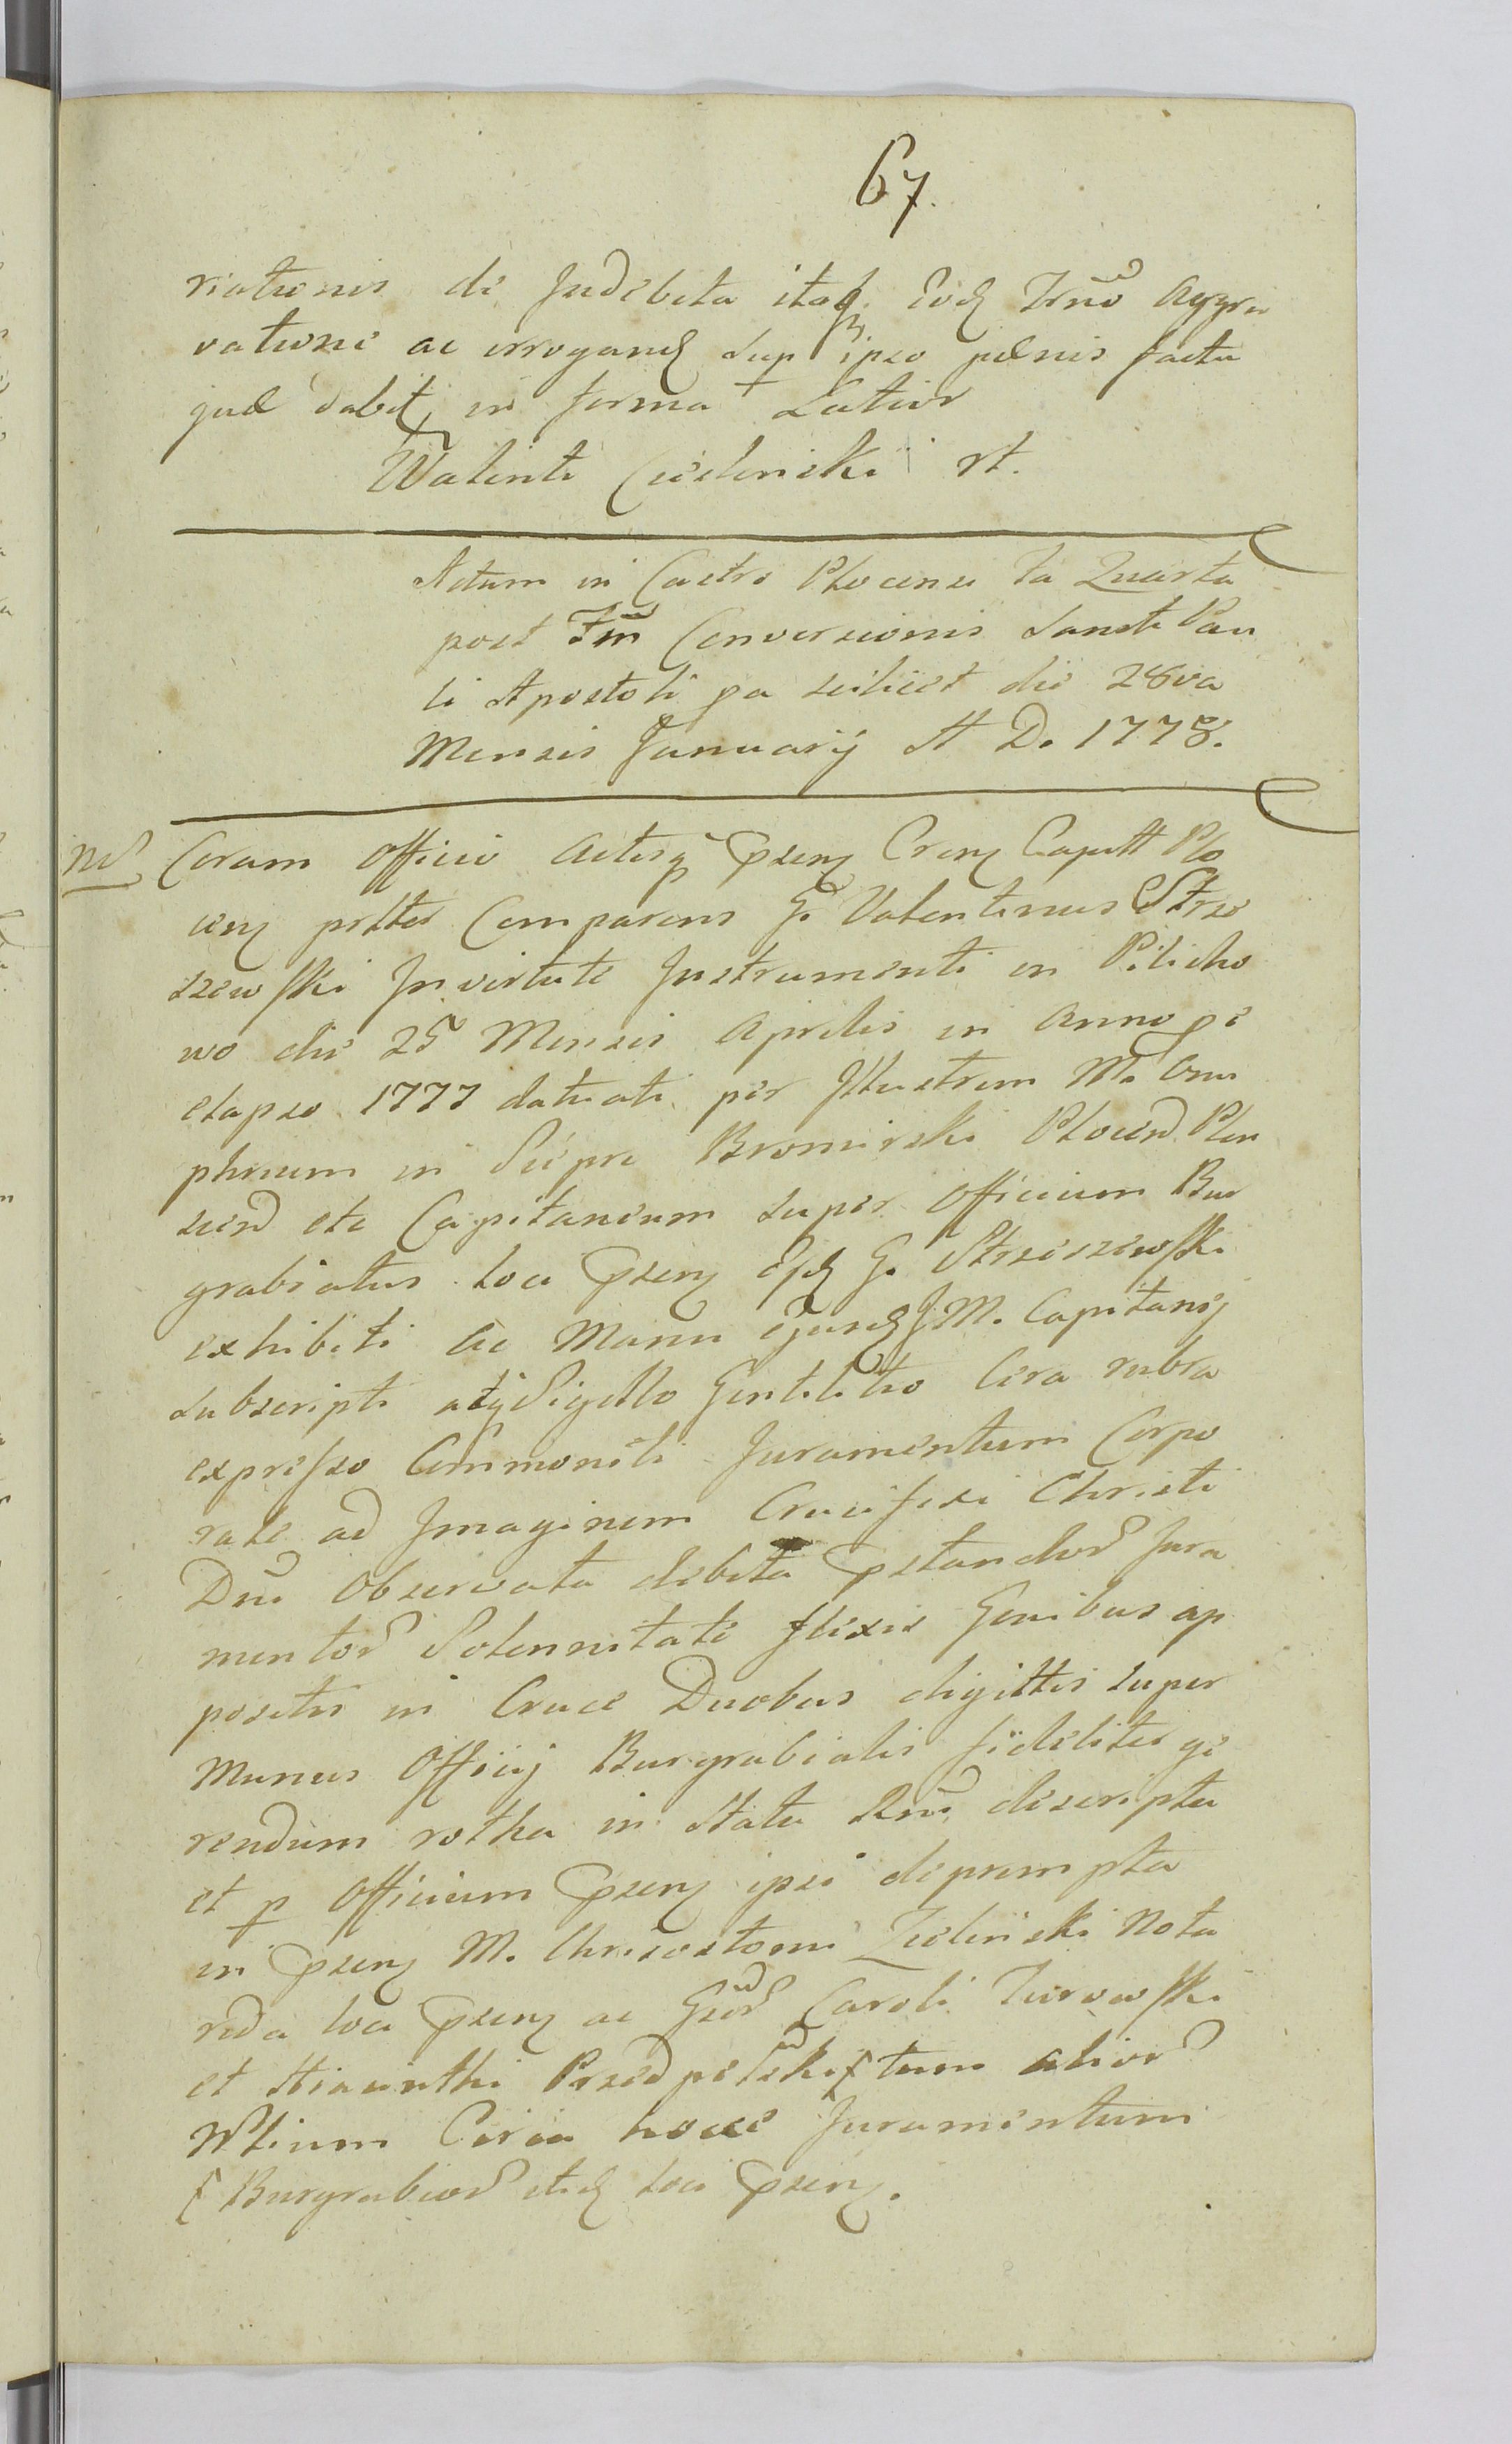 67.
riationis de Indebita itaq. Eod Trno Aggra
vatione ac irrogand sup ipso pœnis facta
quæ dabit, in forma Latior
Walenti Cieslinski rt.
Actum in Castro Plocensi Fa Quarta
post Fm Conversionis Sancti Pau
li Apostoli pa scilicet die 28va
Mensis January A D. 1778.
Coram Officio Actisq pseng Creng Capitt Plo
ceng prltes Comparens G. Valentinus Strze
szewski In virtute Instrumenti in Pilicho
wo die 25 Mensis Aprilis in Anno pe
elapso 1777 datuati per Illustrem M. Onu
phrium in Sieprc Bromirski Plocen Plon
scen etc Capitaneum super Officium Bur
grabiatus loci pseng Epd G. Strzeszewski
exhibiti ac Manu ejusd J. M. Capitanij
subscripti atq Sigillo Gentilitio Cera rubra
expresso Commoniti Juramentum Corpo
rale ad Imaginem Crucifixi Christi
Dni Observata debita pstandor Jura
mentor Solennitate flexis Genibus ap
positis in Cruce Duobus digittis super
Munus Officij Burgrabialis fideliter ge
rendum rotha in Statu Rni descripta
et p Officium pseng ipsi deprompta
in pseng M. Chrisostomi Zielinski Nota
rida loci pseng ac Gsor Caroli Turowski
et Hiacinthi Przedpelski tum alior
Nblium Circa hocce Juramentum
Burgrabior itid loci pseng.